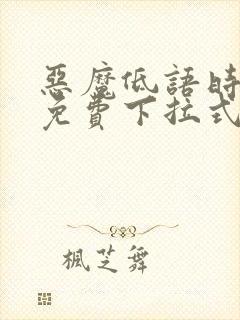 惡魔低語時
免費下拉式
楓芝舞